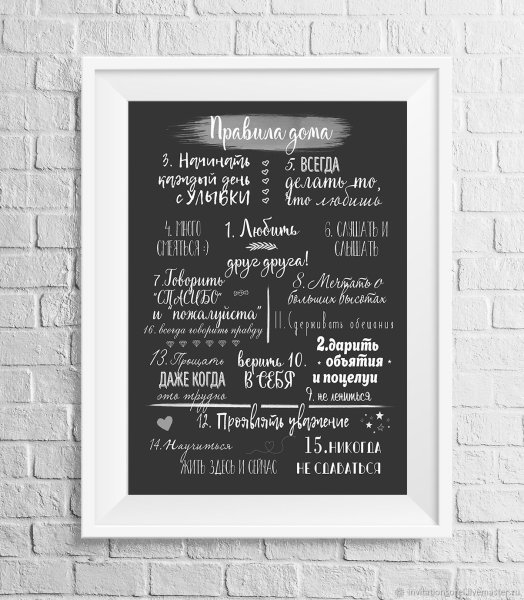 Правила дома
3. Начинать
каждый день
с УЛЫБКИ
5. ВСЕГДА
делать то,
что любишь
4. МНОГО
СМЕЯТЬСЯ :)
1. Любить
друг друга!
6. СЛУШАТЬ И
СЛЫШАТЬ
7. Говорить
"СПАСИБО"
и "пожалуйста"
16. всегда говорить правду
8. Мечтать о
больших высотах
11. Сдерживать обещания
2. дарить
объятия
и поцелуи
13. Прощать
ДАЖЕ КОГДА
это трудно
верить 10.
В СЕБЯ
9. не лениться
12. Проявлять уважение
14. Научиться
ЖИТЬ ЗДЕСЬ И СЕЙЧАС
15. НИКОГДА
НЕ СДАВАТЬСЯ